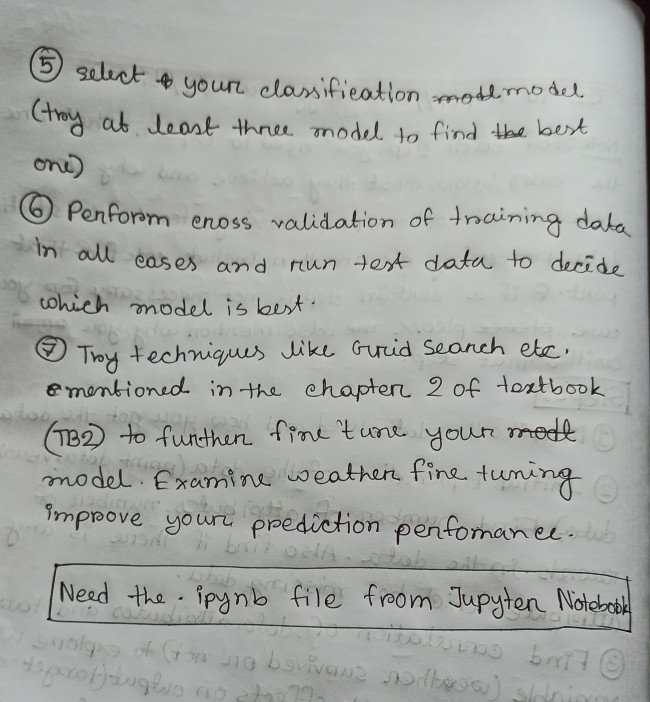 ⑤ select your classification model
(troy at least three model to find the best
one)
⑥ Perform cross validation of training data
in all cases and run test data to decide
which model is best.
⑦ Troy techniques like Grid Search etc.
mentioned in the chapter 2 of textbook
(TB2) to further fine tune your
model. Examine weather fine tuning
improve your prediction perfomance.
Need the .ipynb file from Jupyter Notebook